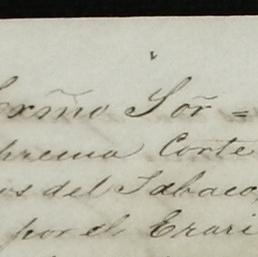 Exm̃o Sor̃ =
prema Corte
os del Tabaco,
por el Erari